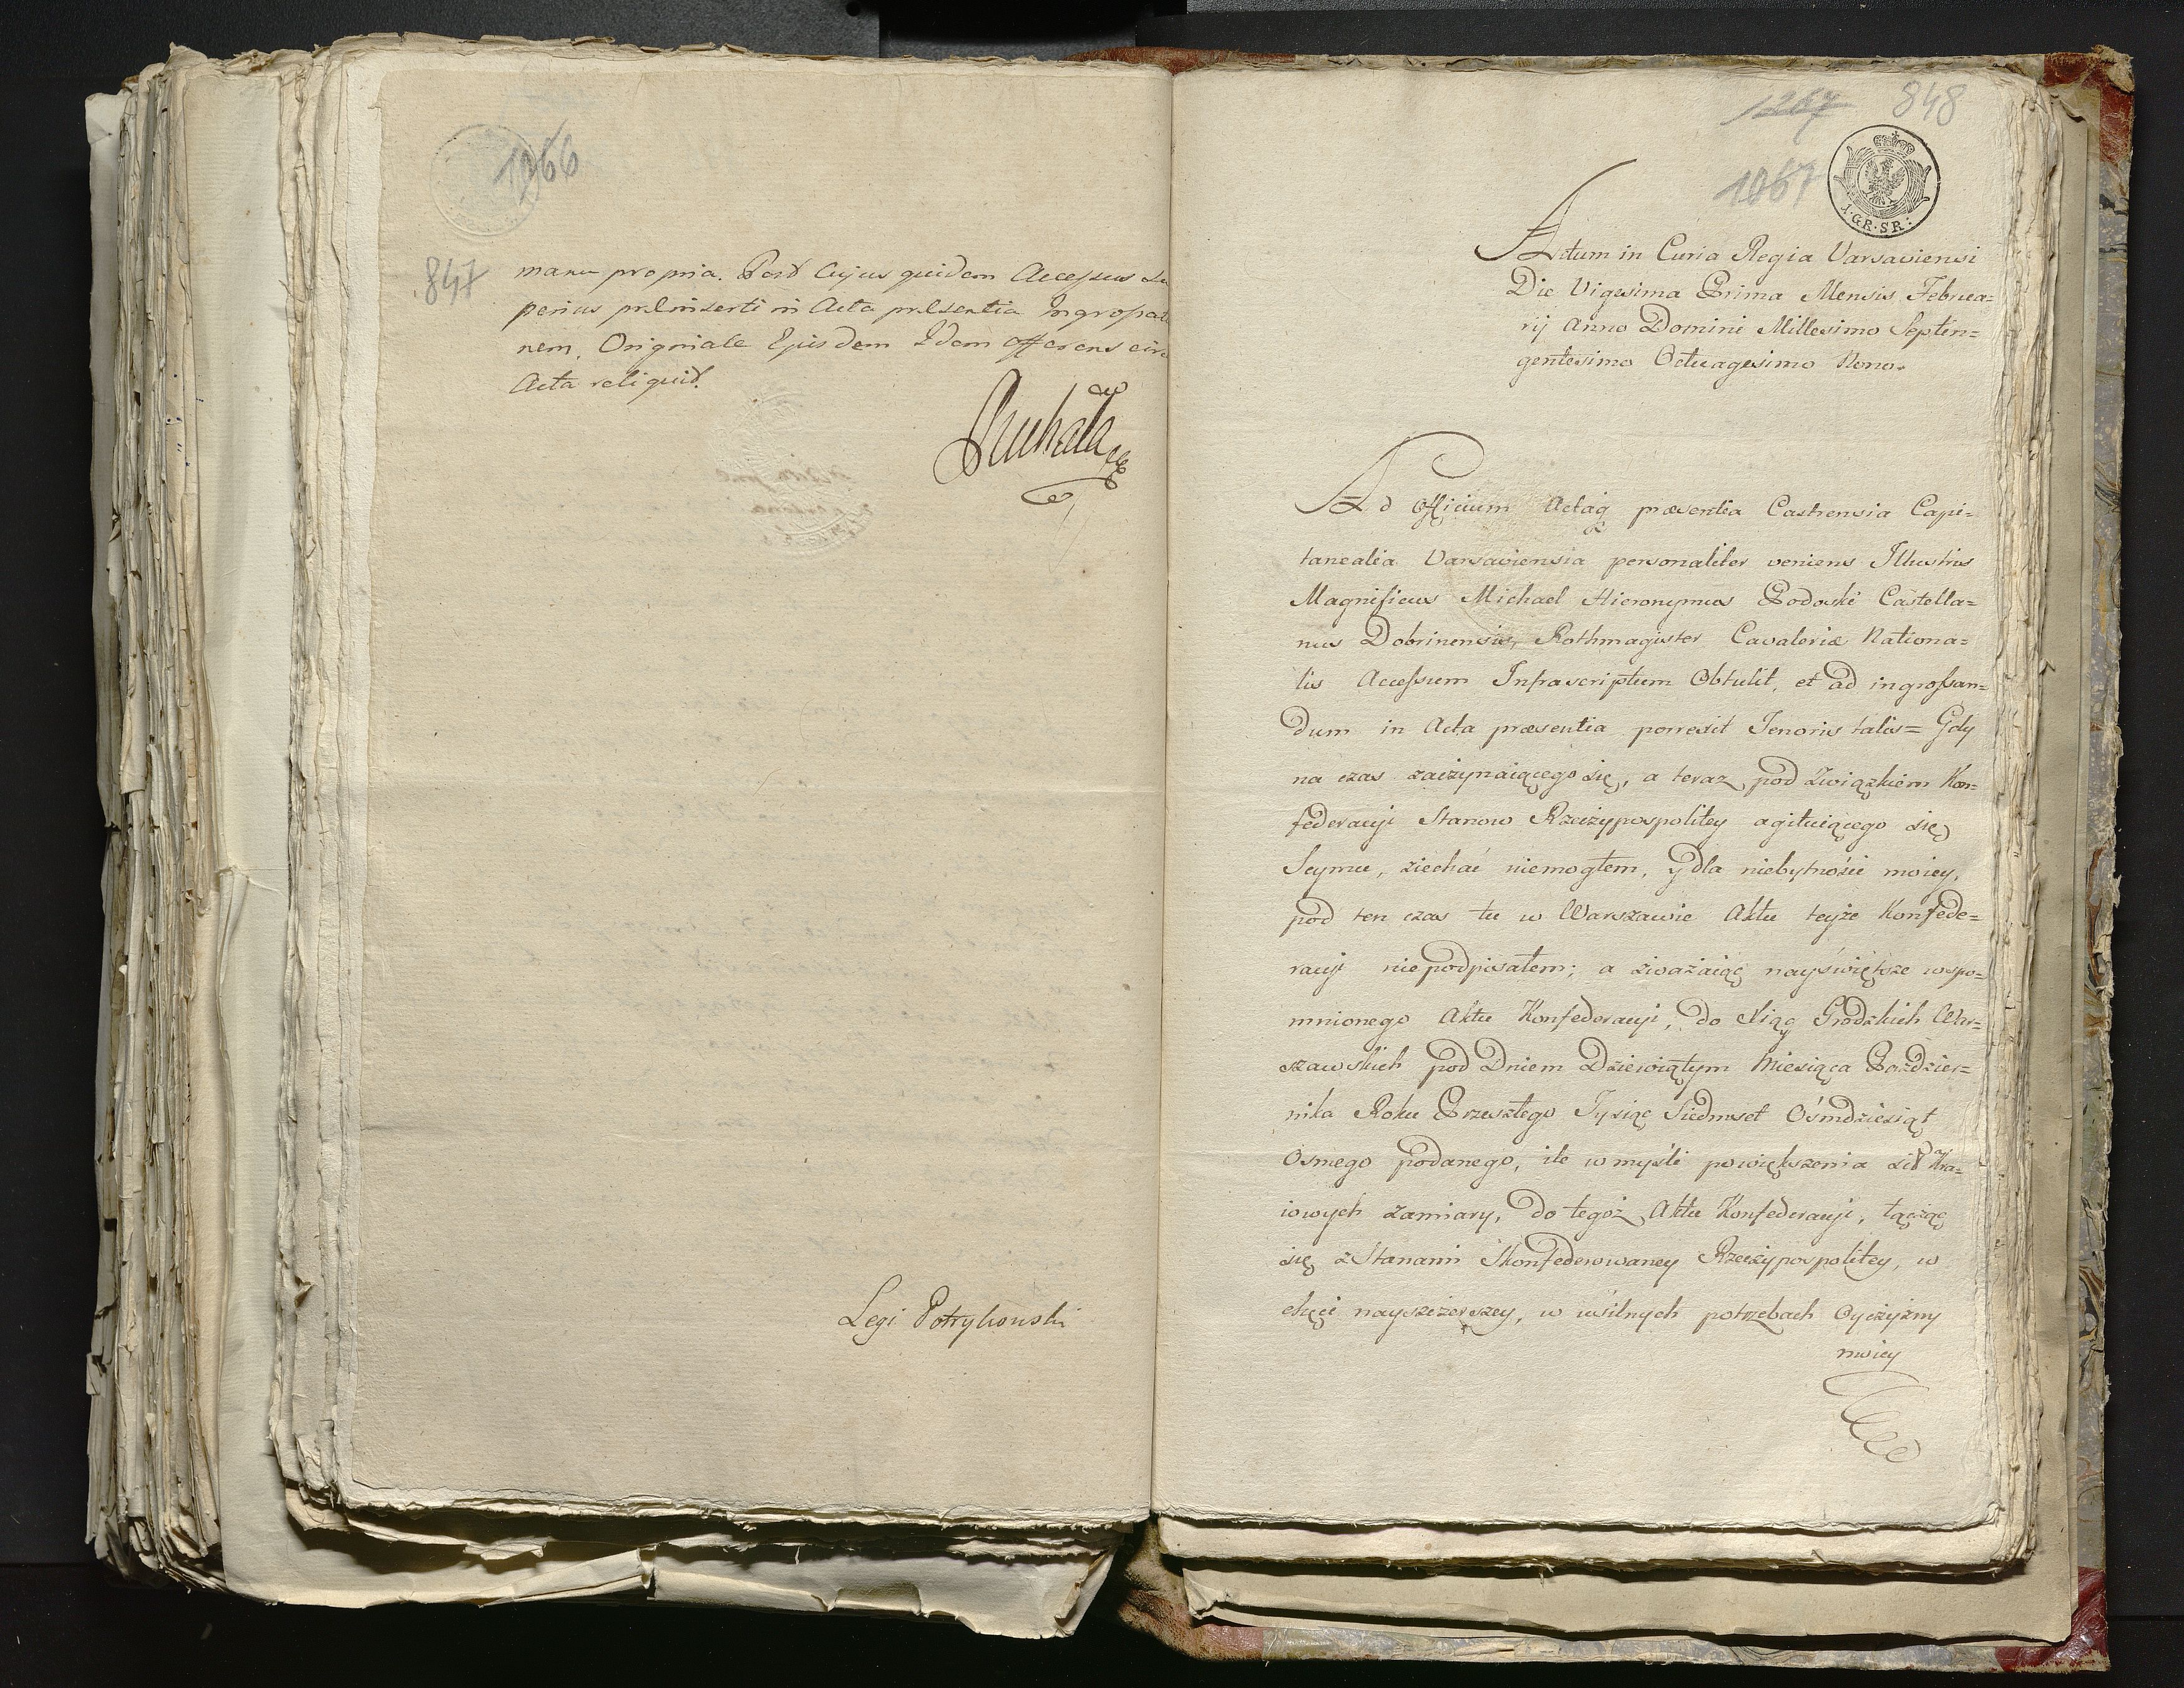 1066
847
manu propria. Post Cujus quidem Accessus Su
perius præinserti in Acta præsentia Ingrossatio
nem, Originale Ejusdem Idem offerens circa
Acta reliquit.
Legi Potrykowski
1267
848
1067
1·GR·SR:
Actum in Curia Regia Varsaviensi
Die Vigesima Prima Mensis Februa=
rij Anno Domini Millesimo Septin=
gentesimo Octuagesimo Nono.
Ad Officium Actaq præsentia Castrensia Capi=
tanealia Varsaviensia personaliter veniens Illustris
Magnificus Michael Hieronymus Podoski Castella=
nus Dobrinensis, Rothmagister Cavaleriæ Nationa=
lis Accessum Infrascriptum Obtulit, et ad ingrossan=
dum in Acta præsentia porrexit Tenoris talis= Gdy
na czas zaczynaiącego się, a teraz pod Związkiem Kon=
federacyi Stanow Rzeczypospolitey agituiącego się
Seymu, ziechać niemogłem, y dla niebytności moiey,
pod ten czas tu w Warszawie Aktu teyże Konfede=
racyi niepodpisałem; a zważaiąc nayświętsze wspo=
mnionego Aktu Konfederacyi, do Xiąg Grodzkich War=
szawskich pod Dniem Dziewiątym Miesiąca Paździer=
nika Roku Przeszłego Tysiąc Siedmset Ośmdziesiąt
Osmego podanego, ile w myśli powiększenia sił Kra=
iowych zamiary, do tegoż Aktu Konfederacyi, łącząc
się z Stanami Skonfederowaney Rzeczypospolitey, w
chęci nayszczerszey, w usilnych potrzebach Oyczyzny
moiey